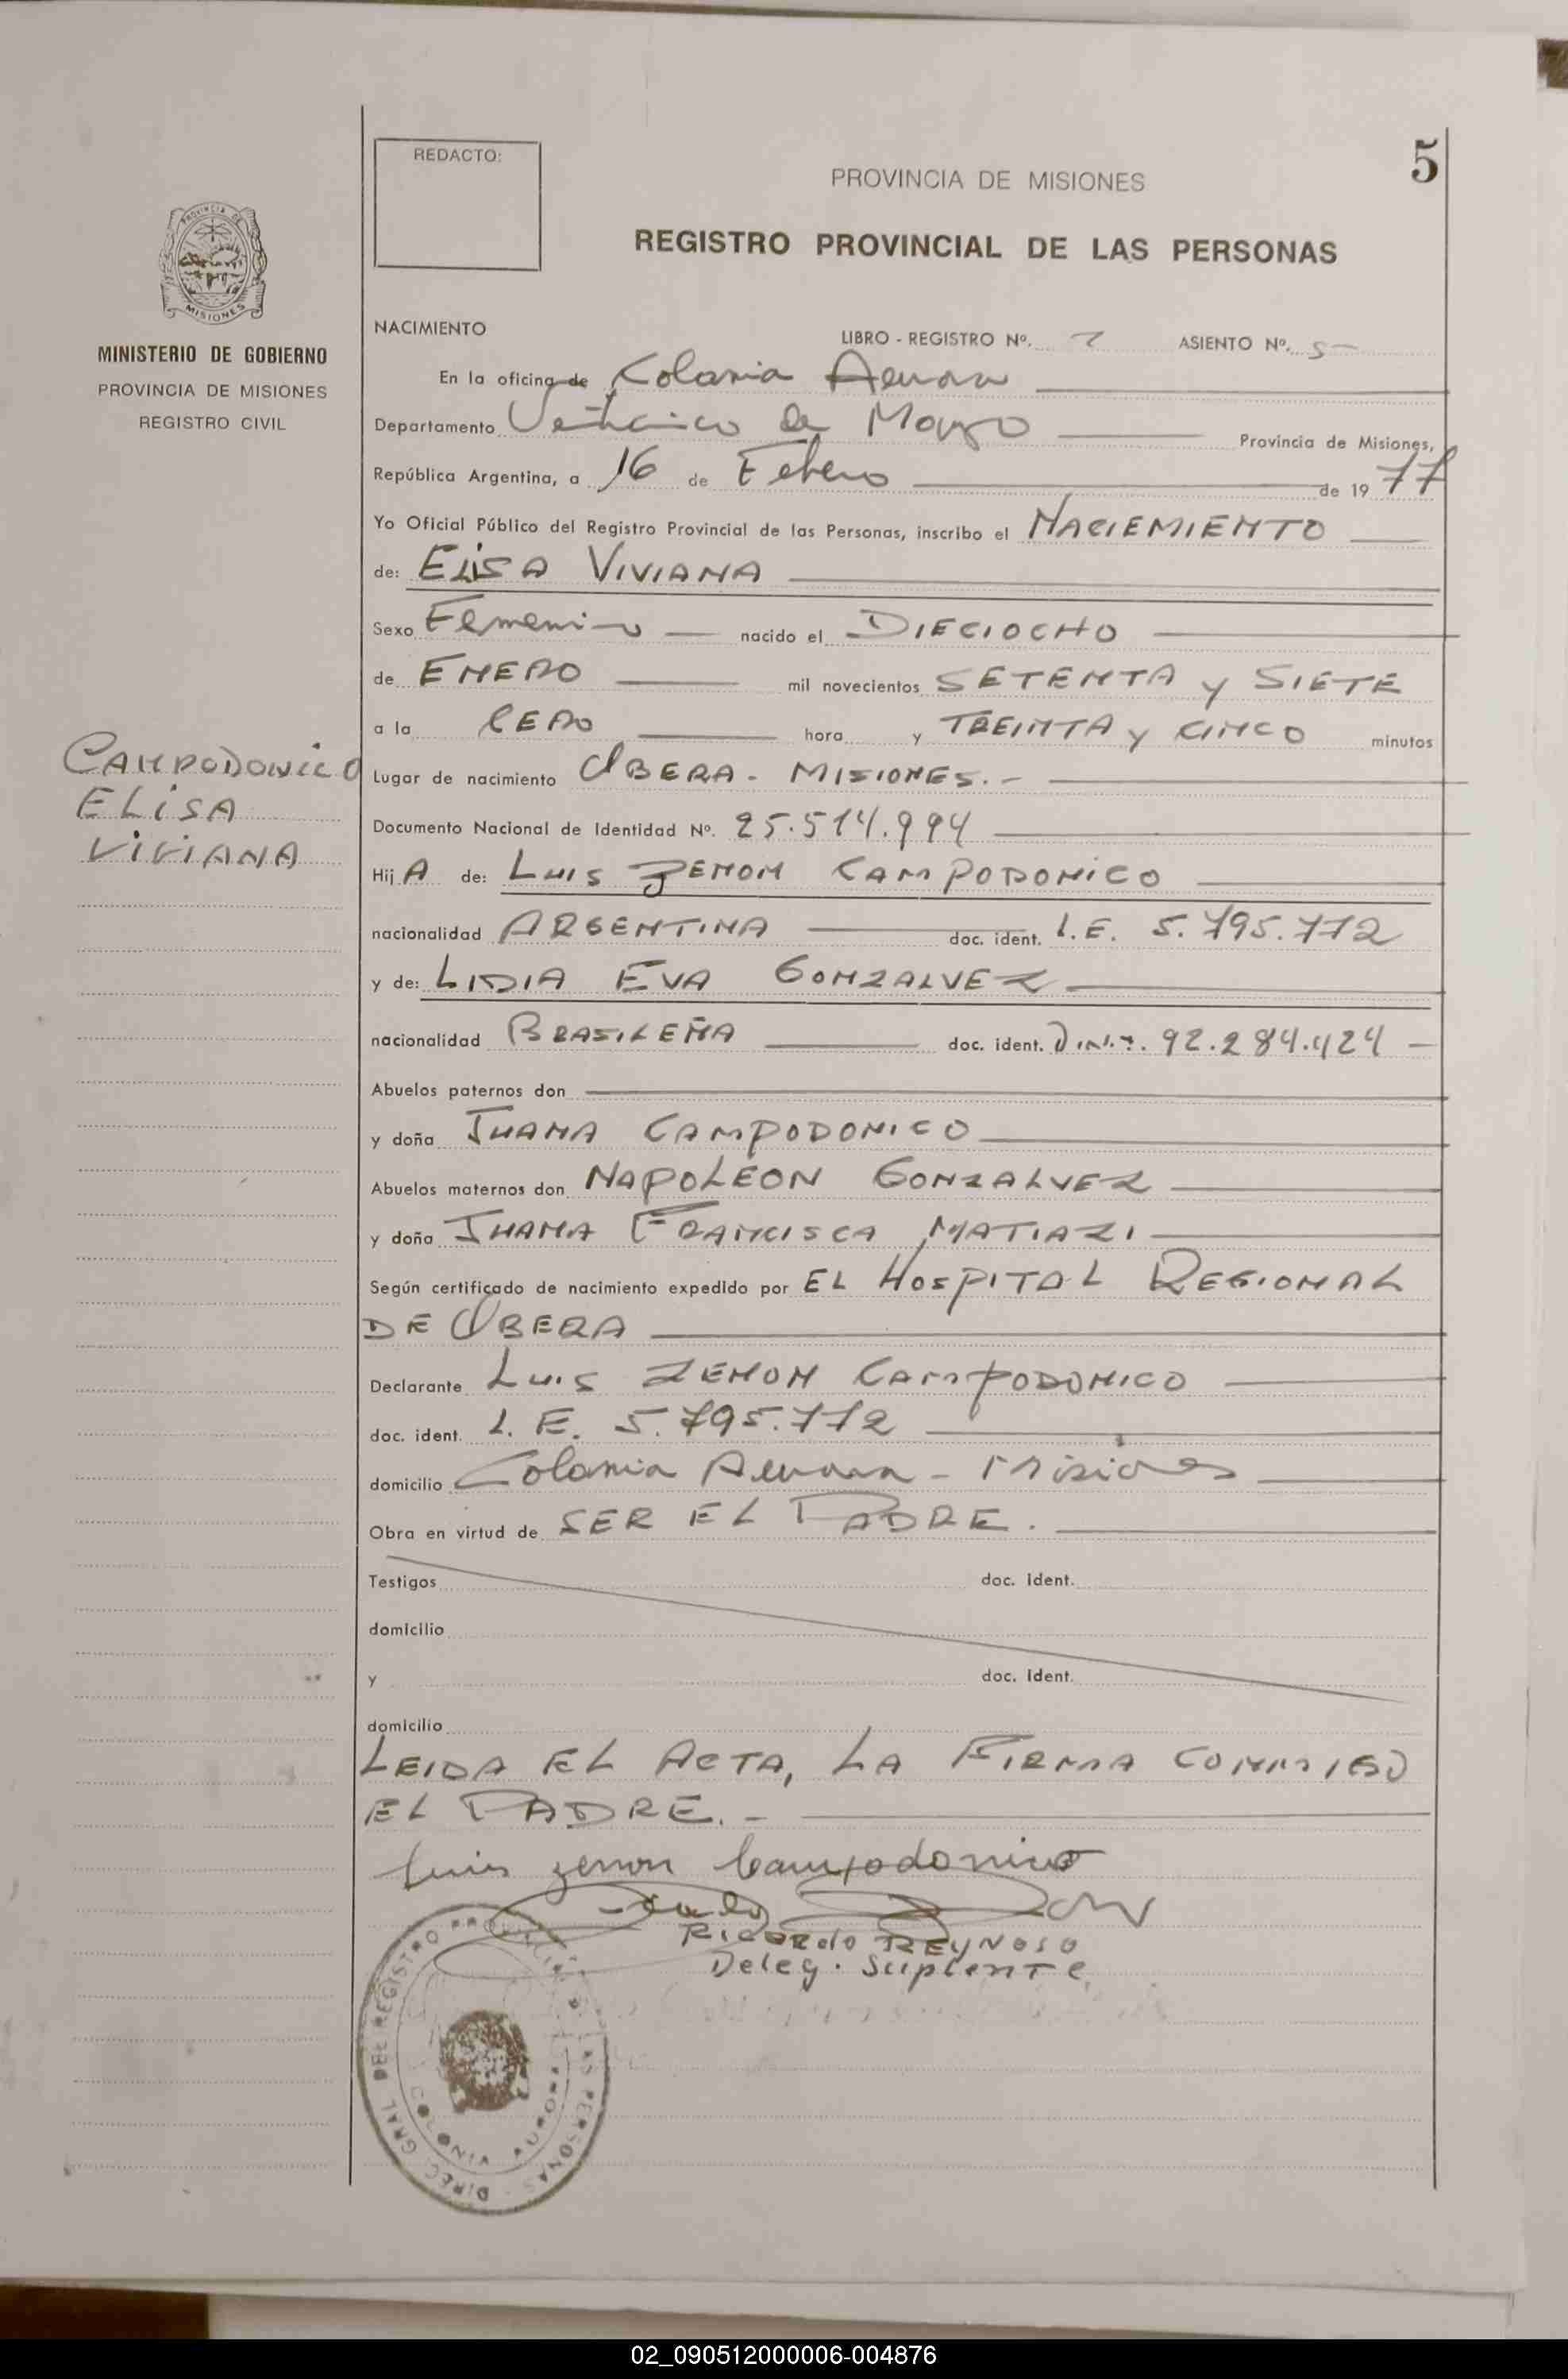 5
REDACTO:
PROVINCIA DE MISIONES
REGISTRO PROVINCIAL DE LAS PERSONAS
PROVINCIA DE
MISIONES
MINISTERIO DE GOBIERNO
PROVINCIA DE MISIONES
REGISTRO CIVIL
CAMPODONICO
ELISA
VIVIANA
NACIMIENTO LIBRO - REGISTRO Nº. ASIENTO Nº. 5
En la oficina de Colonia
Departamento Veinticinco de Mayo Provincia de Misiones,
República Argentina, a 16 de Febrero de 1977
Yo Oficial Público del Registro Provincial de las Personas, inscribo el NACIEMIENTO
de: ELISA VIVIANA
Sexo Femenino nacido el DIECIOCHO
de ENERO mil novecientos SETENTA y SIETE
a la CERO hora y TREINTA y CINCO minutos
Lugar de nacimiento OBERA - MISIONES.-
Documento Nacional de Identidad Nº. 25.514.994
HijA de: LUIS ZENON CAMPODONICO
nacionalidad ARGENTINA doc. ident. L.E. 5.795.772
y de: LIDIA EVA GONZALVEZ
nacionalidad BRASILEÑA doc. ident. D.N.I. 92.284.424
Abuelos paternos don
y doña JUANA CAMPODONICO
Abuelos maternos don NAPOLEON GONZALVEZ
y doña JUANA FRANCISCA MATIAZI
Según certificado de nacimiento expedido por EL HOSPITAL REGIONAL
DE OBERA
Declarante LUIS ZENON CAMPODONICO
doc. ident. L.E. 5.795.772
domicilio Colonia Aurora - Misiones
Obra en virtud de SER EL PADRE.
Testigos doc. ident.
domicilio
y doc. ident.
domicilio
LEIDA EL ACTA, LA FIRMA CONMIGO
EL PADRE.-
Luis zenon Campodonico
Ricardo REYNOSO
Deleg. Suplente
DIREC. GRAL DEL REGISTRO PROVINCIAL DE LAS PERSONAS
COLONIA AURORA
02_090512000006-004876